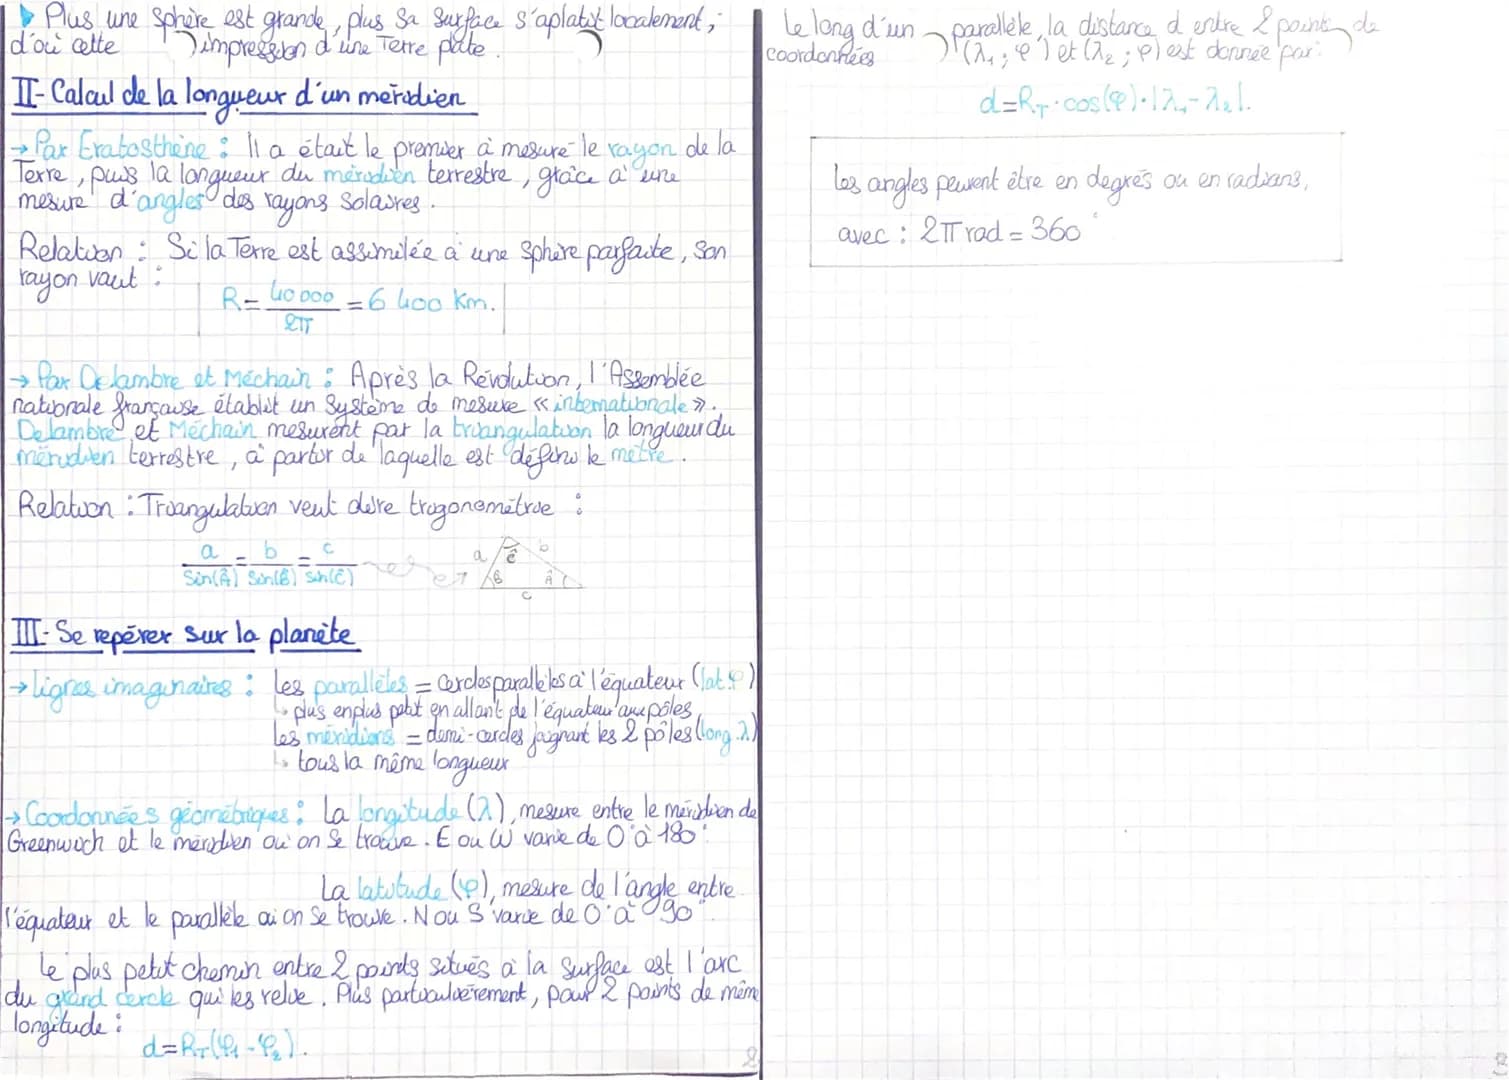 Plus une sphère est grande, plus sa surface s'aplatit localement,
d'où cette impression d'une Terre plate.
II- Calcul de la longueur d'un méridien
→ Par Eratosthène : Il a était le premier à mesuré le rayon de la
Terre, puis la longueur du méridien terrestre, grâce à une
mesure d'angles des rayons solaires.
Relation : Si la Terre est assimilée à une sphère parfaite, son
rayon vaut :
R = 40 000 / 2π = 6 400 Km.
→ Par Delambre et Méchain : Après la Révolution, l'Assemblée
nationale française établit un système de mesure « internationale ».
Delambre et Méchain mesurent par la triangulation la longueur du
méridien terrestre, à partir de laquelle est défini le mètre.
Relation : Triangulation veut dire trigonométrie :
a/Sin(Â) = b/Sin(B̂) = c/Sin(Ĉ)
a Ĉ b
B̂ Â
c
III- Se repérer sur la planète
→ Lignes imaginaires : Les parallèles = cercles parallèles à l'équateur (lat. φ)
↳ plus en plus petit en allant de l'équateur aux pôles
Les méridiens = demi-cercles joignant les 2 pôles (long. λ)
↳ tous la même longueur
→ Coordonnées géométriques : La longitude (λ), mesure entre le méridien de
Greenwich et le méridien où on se trouve. E ou W varie de 0° à 180°.
La latitude (φ), mesure de l'angle entre
l'équateur et le parallèle où on se trouve. N ou S varie de 0° à 90°.
Le plus petit chemin entre 2 points situés à la surface est l'arc
du grand cercle qui les relie. Plus particulièrement, pour 2 points de même
longitude :
d=R_T(φ₁ - φ₂).
2
Le long d'un parallèle, la distance d entre 2 points de
coordonnées (λ₁ ; φ) et (λ₂ ; φ) est donnée par :
d=R_T · cos(φ) · |λ₁ - λ₂|.
Les angles peuvent être en degrés ou en radians,
avec : 2π rad = 360°
3